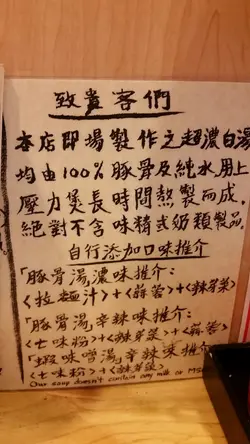 致貴客們
本店即場製作之超濃白湯
均由100%豚骨及純水,用上
壓力煲長時間熬製而成,
絕對不含味精或奶類製品。
自行添加口味推介
「豚骨湯」濃味推介:
<拉麵汁>+<蒜蓉>+<辣芽菜>
「豚骨湯」辛辣味推介:
<七味粉>+<辣芽菜>+<蒜蓉>
「蝦味噌湯」辛辣味推介:
<七味粉>+<辣芽菜>
Our soup doesn't contain any milk or MSG